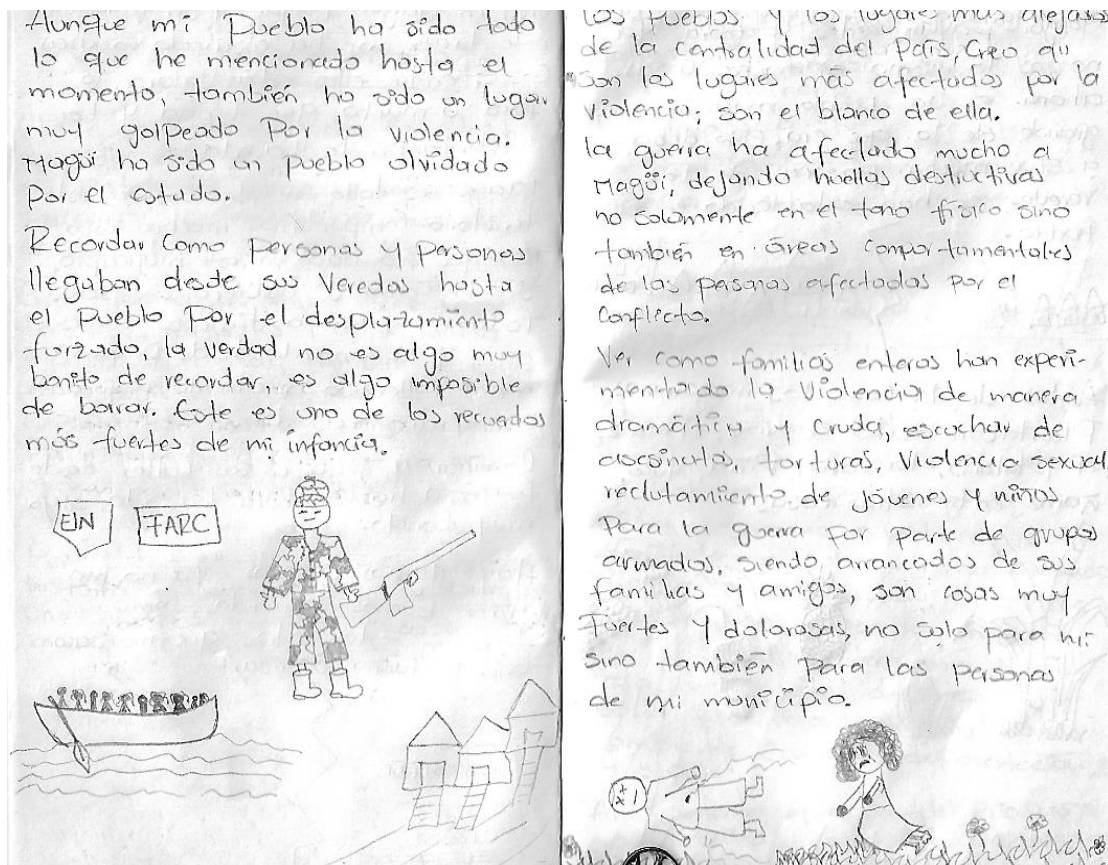 Aunque mi Pueblo ha sido todo
lo que he mencionado hasta el
momento, también ha sido un lugar
muy golpeado Por la violencia.
Magüi ha sido un pueblo olvidado
Por el estado.
Recordar Como personas y personas
llegaban desde sus Veredas hasta
el Pueblo Por el desplazamiento
forzado, la verdad no es algo muy
bonito de recordar, es algo imposible
de borrar. Este es uno de los recuerdos
más fuertes de mi infancia.
ElN
FARC
Los Pueblos y los lugares más alejados
de la centralidad del País, Creo
son los lugares más afectados por la
violencia; son el blanco de ella.
la guerra ha afectado mucho a
Magüi, dejando huellas destructivas
no solamente en el tono físico sino
también en áreas comportamentales
de las pesonas afectadas Por el
Conflicto.
Ver como familias enteras han experi-
mentado la Violencia de manera
dramática y Cruda, escuchar de
asesinatos, torturas, Violencia sexual
reclutamiento de jóvenes y niños
Para la guerra por parte de grupos
armados, siendo arrancados de sus
familias y amigos, son cosas muy
Fuertes y dolorosas, no solo para mi
sino también Para las personas
de mi municipio.